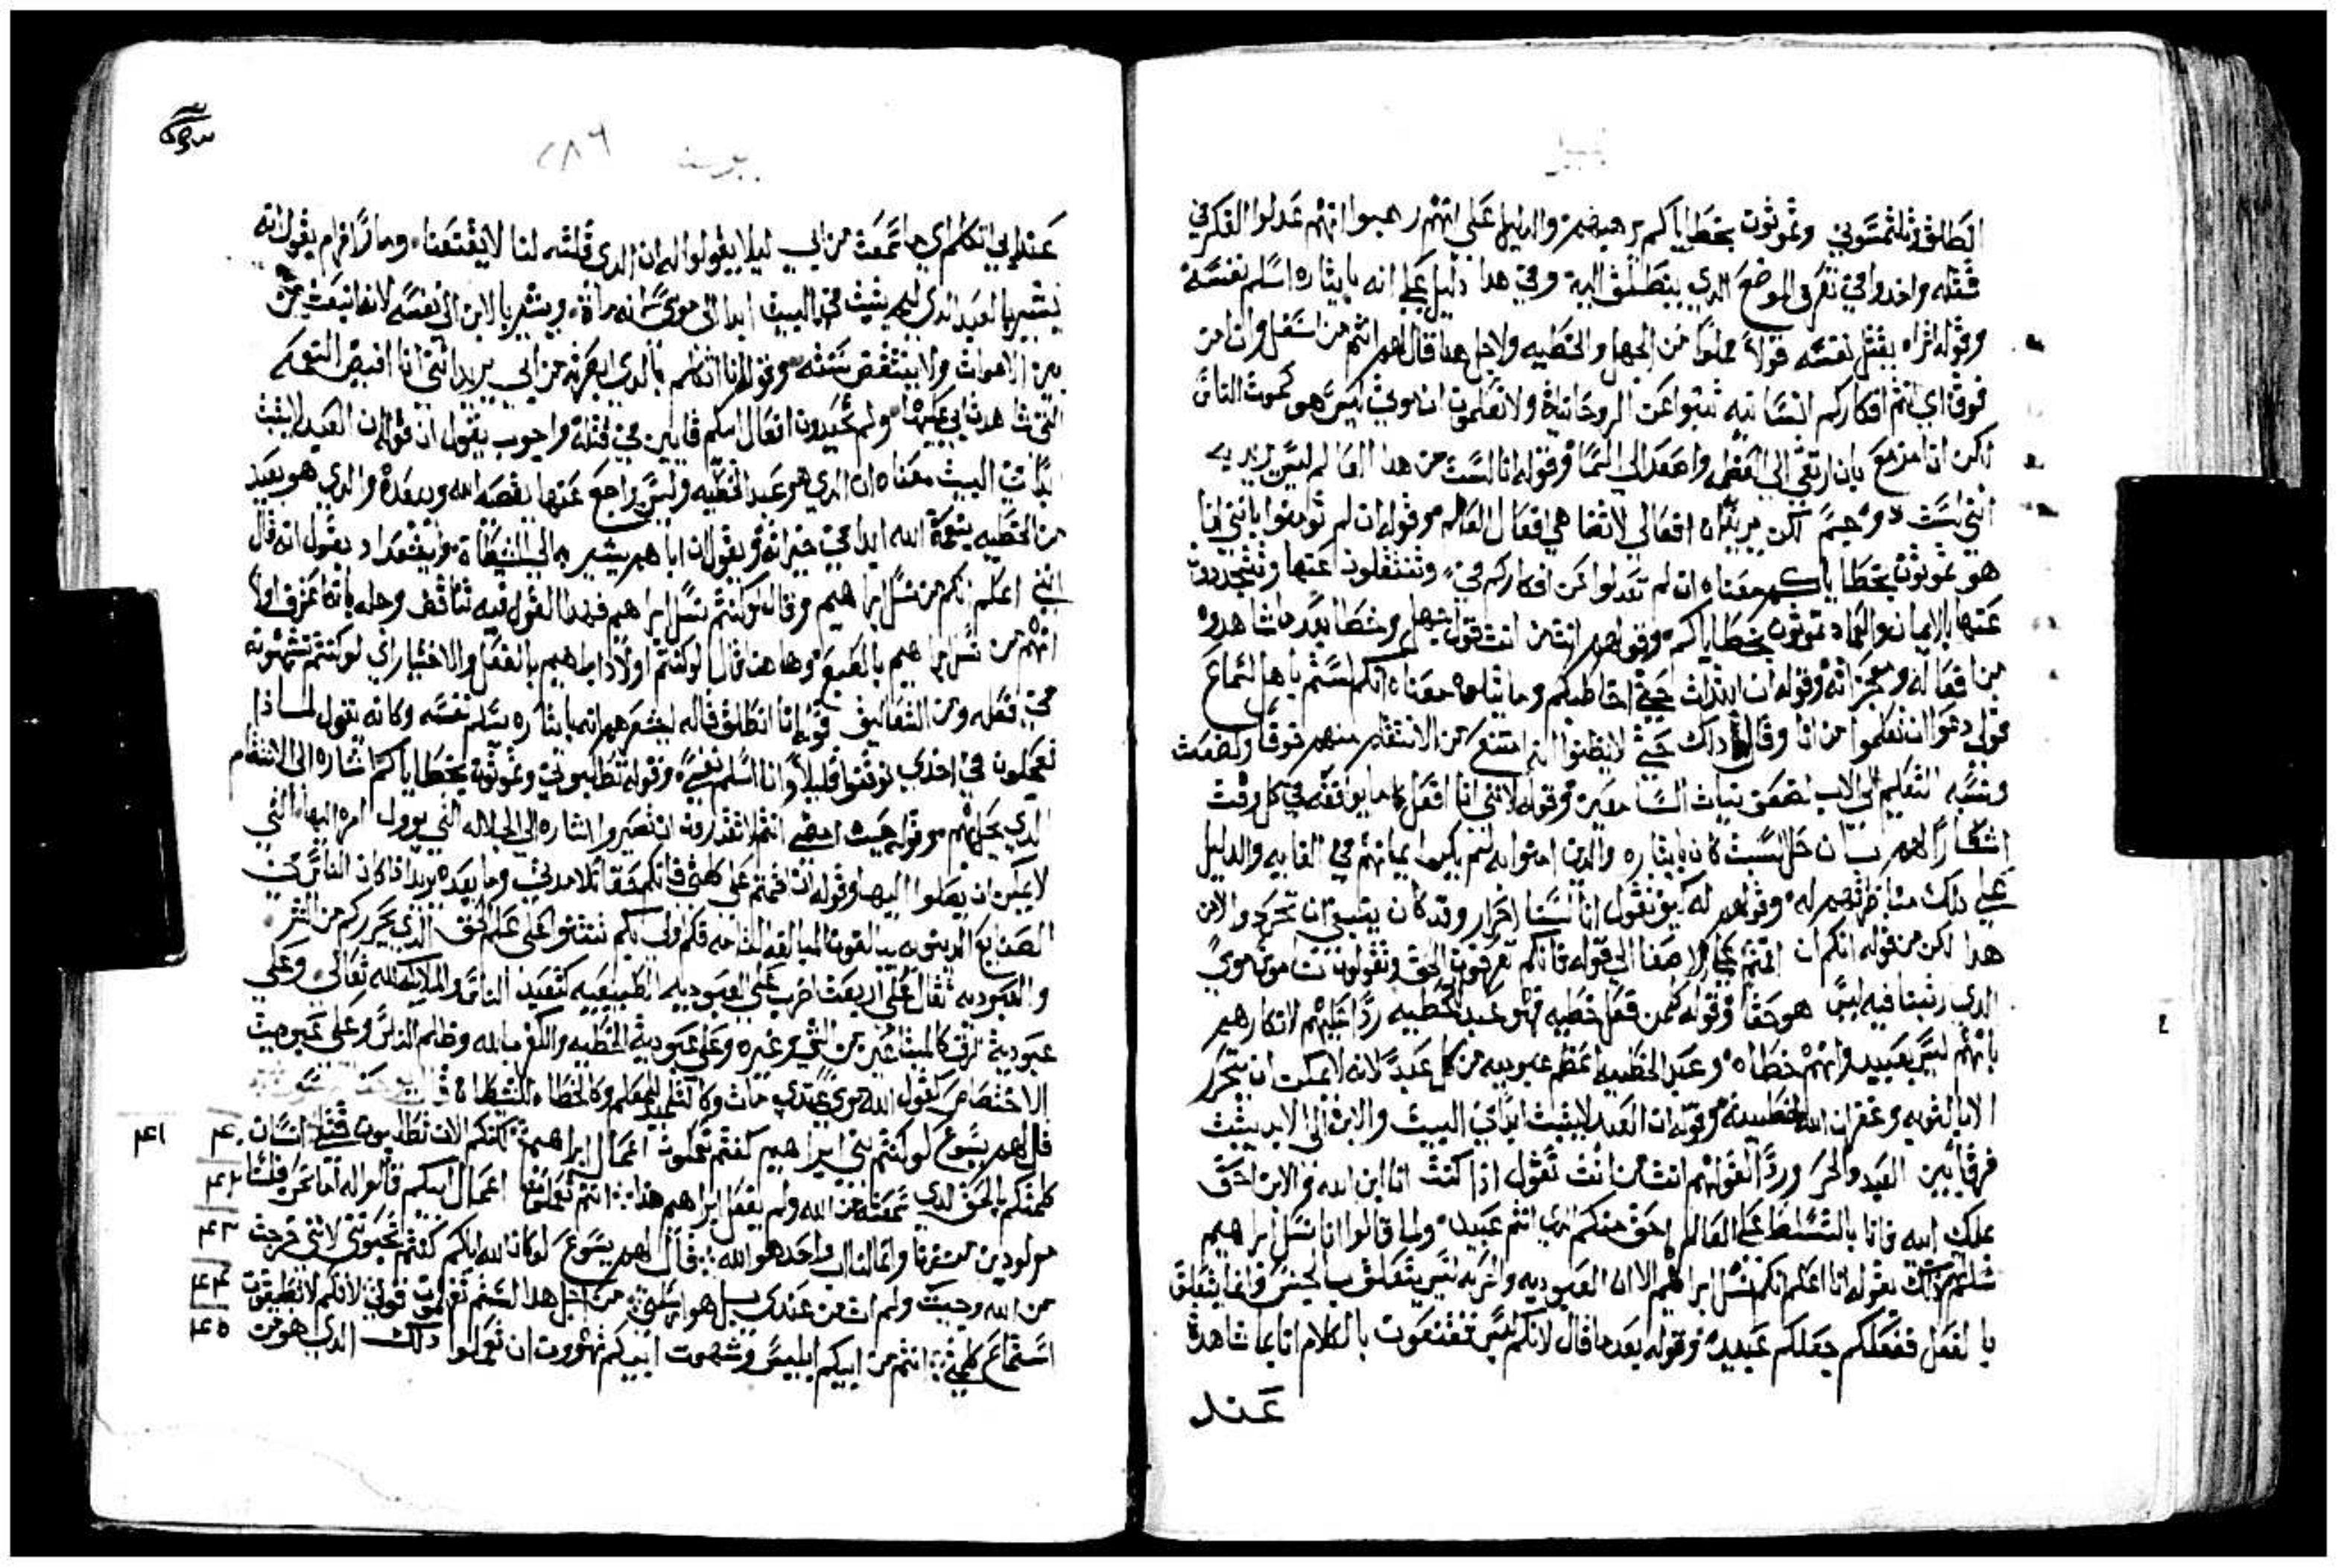 انطلق وتلتمسوني وتموتون بخطاياكم ترهيبهم والدليل على انهم رهبوا انهم عدلوا الفكر في
قتله واخدوا في تعرف الموضع الدي ينطلق اليه وفي هدا دليل على انه بايثاره اسلم نفسه
وقولهم اتراه يقتل نفسه قولاً مملوا من الجهل والخطيه ولاجل هدا قال لهم انتم من اسفل وانا من
فوق اي انتم افكاركم انسانيه تنبوا عن الروحانية ولا تعلمون ان موتي ليس هو كموت الناس
لكن انا مزمع بان ارتقي الى العظمه واصعد الى السما وقوله انا لست من هدا العالم ليس يريد به
انني لست دو جسم لكن يريد ان افعالي لاتضاهي افعال العالم وقوله ان لم تومنوا بانني انا
هو تموتون بخطاياكم معناه ان لم تعدلوا عن افكاركم في وتنتقلون عنها وتتجددون
عنها بالايمان والعماد تموتون بخطاياكم وقولهم انت من انت قول جهل وخطا بعد ما شاهدوه
من افعاله ومعجزاته وقوله ان ابتدات حتى اخاطبكم وما يتلوه معناه انكم لستم باهل لسماع
قولي دعوا ان تعلموا من انا وقال داك حتى لا يظنوا انه امتنع من الانتقام منهم خوفا ولضعف
ونسبه التعليم الى الاب لضعف نيات السامعين وقوله لانني انا افعل كل ما يوافقه في كل وقت
اشعاراً لهم بان حل السبت كان بايثاره والدين امنوا به لم يكن ايمانهم في الغايه والدليل
على دلك مناظرتهم له وقولهم له كيف تقول اننا لسنا احرار وقد كان ينبغي ان نحرد والان
هدا لكن من قوله انكم ان اقمتم على الاصغا الى قولي فانكم تعرفون الحق وتقولون ان ناموس موسى
الدي ربينا فيه ليس هو حقا وقوله كل من فعل خطيه فهو عبد للخطيه رداً عليهم لانكارهم
بانهم ليس بعبيد وانهم خطاه وعبد الخطيه اعظم عبوديه من كل عبد لانه لا يمكن ان يتحرر
الا بالتوبه وغفران الله لخطيته وقوله ان العبد لا يثبت ابداً في البيت والابن الى الابد يثبت
فرقاً بين العبد والحر ورداً لقولهم انت من انت تقول ادا كنت انا ابن الله والابن احق
بملك ابيه فانا بالتسلط على العالم احق منكم الدي انتم عبيد ولما قالوا انا نسل ابراهيم
شلبهم دلك بقوله انا اعلم انكم نسل ابراهيم الا ان العبوديه والحريه ليس يتعلق بالجنس وانما يتعلق
بالفعل ففعلكم جعلكم عبيد وقوله بعد ما قال لانكم ليس تقتنعون بالكلام انا بما شاهدت
عند
٢٨٦
يوحنا
عند ابي اتكلم اي ما سمعت من ابي ليلا يقولوا له ان الدي قلته لنا لا يقنعنا ومار افرام يقول انه
يشير بالعبد الدي ليس يثبت في البيت ابدا الى موسى لانه مات ويشير بالابن الى نفسه لانه انبعث من
بين الاموات ولا ينتقض سنته وقوله انا اتكلم بالدي ابصرته من ابي يريد انني انا اقبض التوكم
التي شاهدت ابي عليها ولم تحيدون افعال ابيكم قايين في قتله واجوب يقول ان قوله ان العبد لا يثبت
ابداً في البيت معناه ان الدي هو عبد الخطيه وليس يراجع عنها يقصه الله ويبعده والدي هو بعيد
من الخطيه يتوكه الله ابدا في خيراته ويقول ان اباهم يشير به الى الشيطان وايشعداد يقول انه قال
انني اعلم انكم من نسل ابراهيم وقال لو كنتم نسل ابراهيم فهدا القول فيه تناقض وحله بانه اعترف اولاً
انهم من نسل ابراهيم بالطبع وها هنا قال لو كنتم اولاد ابراهيم بالفعل والاختيار اي لو كنتم تتشبهون به
في فعله ومن التعاليق قوله انا انطلق قاله ليشعرهم انه بايثاره سلم نفسه وكانه يقول لماذا
تعجلون في اخدي توقفوا قليلاً وانا اسلم نفسي وقوله تطلبوني وتموتون بخطاياكم اشاره الى الانتقام
الدي يحل بهم وقوله حيث امضي انتم لا تقدرون ان تصيروا اشاره الى الجلاله التي يوول امره اليها التي
لا يمكن ان يصلوا اليها وقوله ان اقمتم على كلمتي فانكم حقا تلامدتي وما بعده يريد ادا كان الناس في
الصنايع الدنيويه يبالغون المبالغه التامه فكم اولى بكم تثبتوا على علم الحق الدي يحرركم من الشر
والعبوديه تقال على اربعت اضرب على العبوديه الطبيعيه كتعبد الناس والملايكه لله تعالى وعلى
عبودية الرق كالمبتاعين من الشي وغيره وعلى عبودية الخطيه والكفر بالله وظلم الناس وعلى عبوديت
الاختصاص كقول الله موسى عبدي مات وكالتلميد للمعلم وكالخطاه للشيطان
قال لهم يسوع لو كنتم بني ابراهيم كنتم تعملون اعمال ابراهيم لكنكم الان تطلبون قتلي انسان ٤٠ ٤١
كلمتكم بالحق الدي سمعته من الله ولم يفعل ابراهيم هدا انتم تعملون اعمال ابيكم قالوا له اما نحن فلسنا ٤٢
مولودين من زنا وانما لنا اب واحد هو الله قال لهم يسوع لو كان الله اباكم كنتم تحبوني لانني خرجت ٤٣
من الله وجيت ولم ات من عندي بل هو ارسلني من اجل هدا لستم تعرفون قولي لانكم لا تطيقون ٤٤
استماع كلمتي انتم من ابيكم ابليس وشهوت ابيكم تهوون ان تعملوا دلك الدي هو من ٤٥